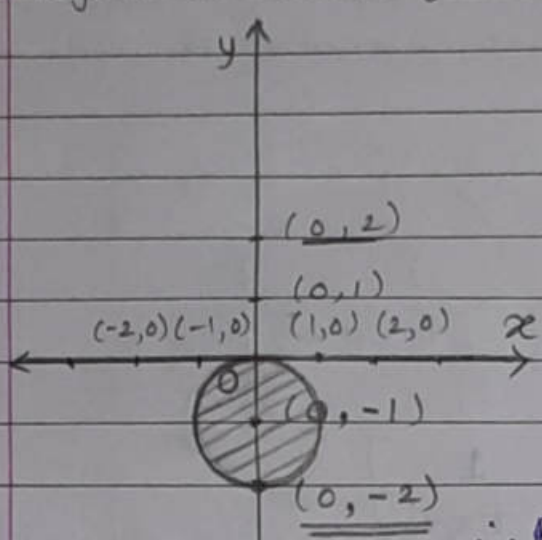 y
(0, 2)
(0, 1)
(-2,0) (-1,0) (1,0) (2,0) x
O
(0, -1)
(0, -2)